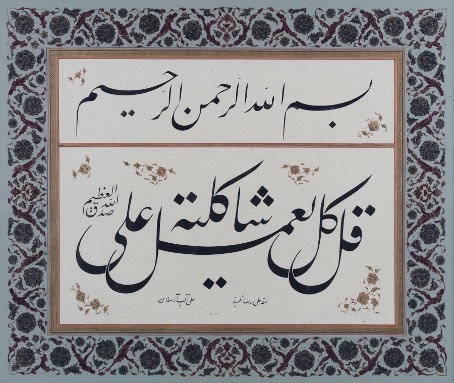 بسم الله الرحمن الرحيم
قل كل يعمل على شاكلته
صدق الله العظيم